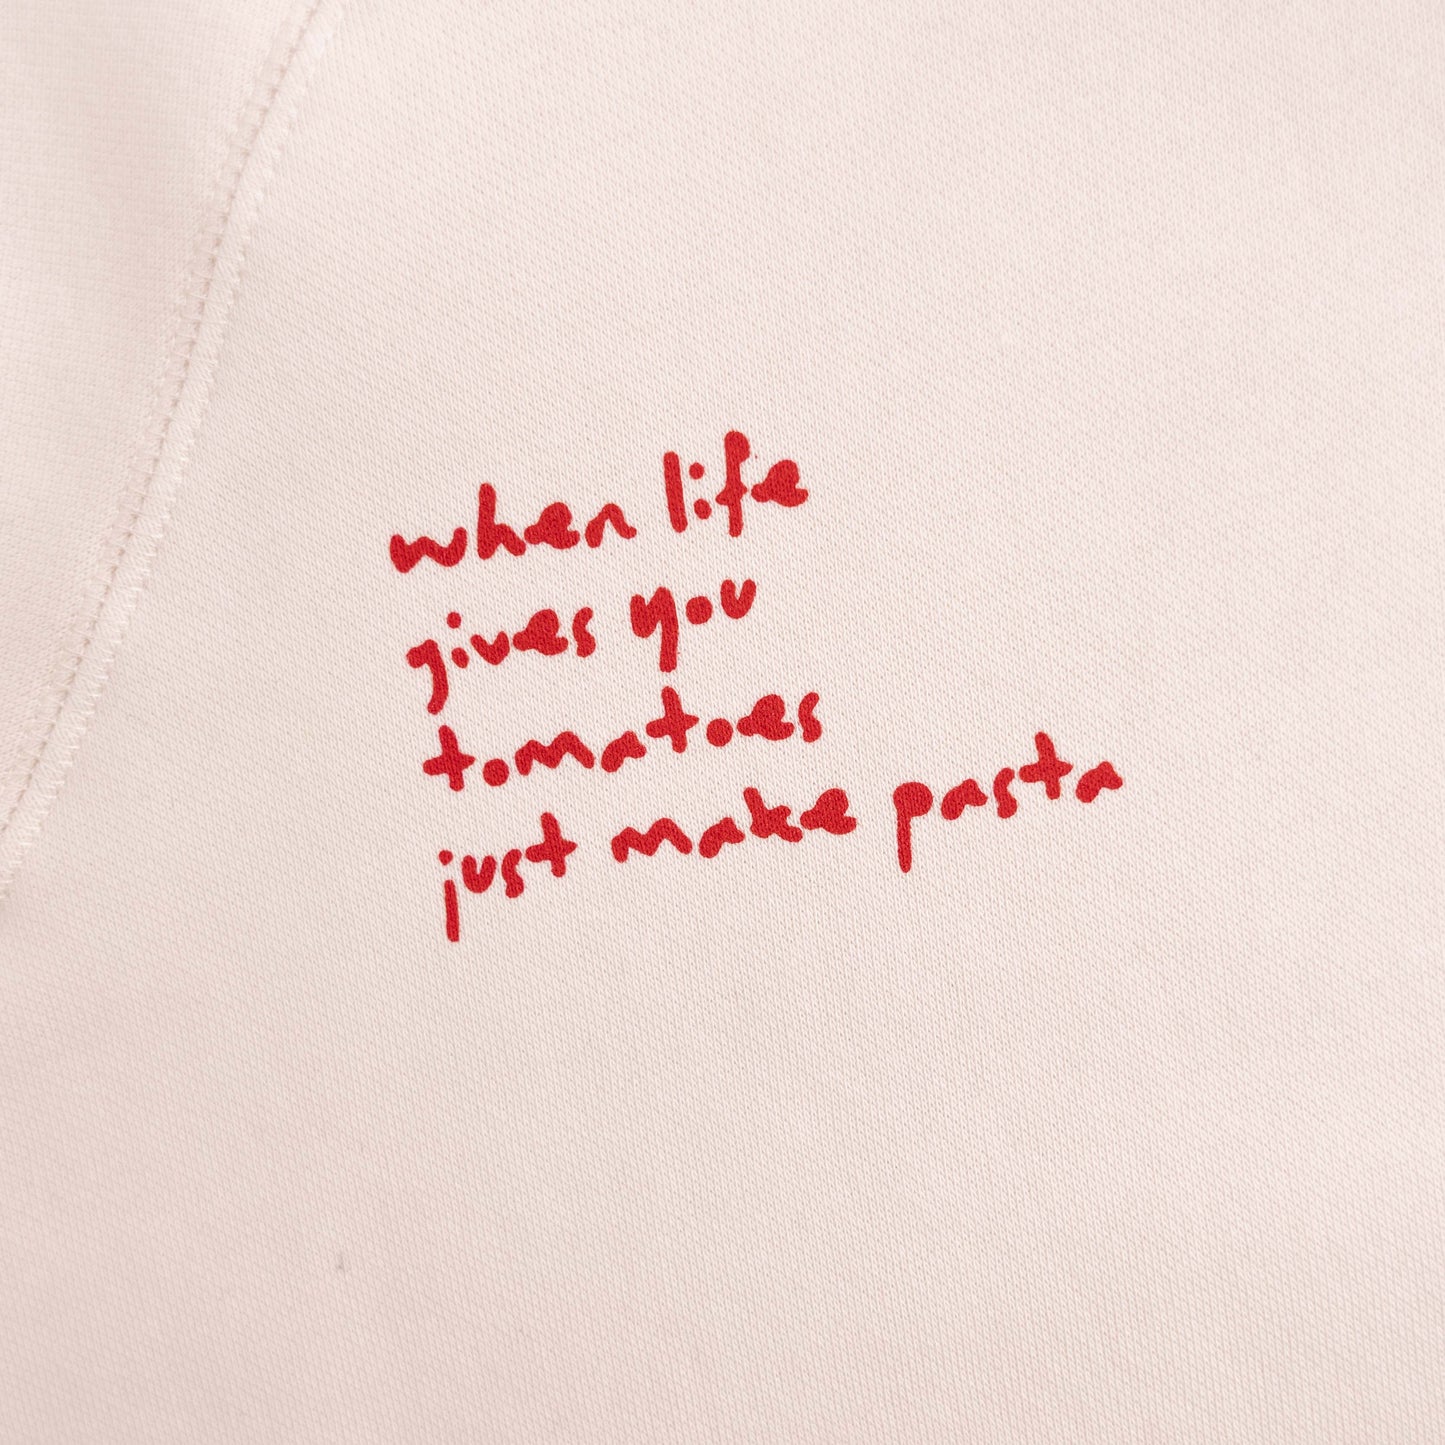 when life
gives you
tomatoes
just make pasta